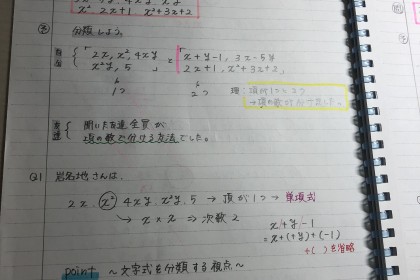 x² 2x+1 x²+3x+2
③ 分類しよう。
自答 { 「2x, x², 4xy, x²y, 5 」 と 「 x+y-1, 3x-5y, 2x+1, x²+3x+2 」
1つ 2つ
理:項が1つと2つ
→項の数が
友達 { 聞いた友達全員が
項の数で分ける方法でした。
Q1
2x, x², 4xy, x²y, 5 → 項が1つ → 単項式
→ x × x ⇒ 次数 2
x+y-1
=x+(+y)+(-1)
+( )を省略
point ~文字式を分類する視点~